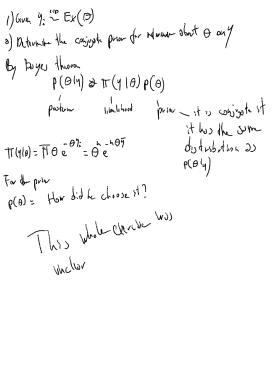 1) Given yᵢ iid~ Ex(θ)
a) Determine the conjugate prior for inference about θ on y
By Bayes theorem
p(θ|y) ∝ π(y|θ) p(θ)
posterior likelihood prior – it is conjugate if
it has the same
distribution as
p(θ|y)
π(y|θ) = Π θ e^{-θyᵢ} = θⁿ e^{-nθȳ}
For the prior
p(θ) = How did he choose it?
This whole exercise was
unclear